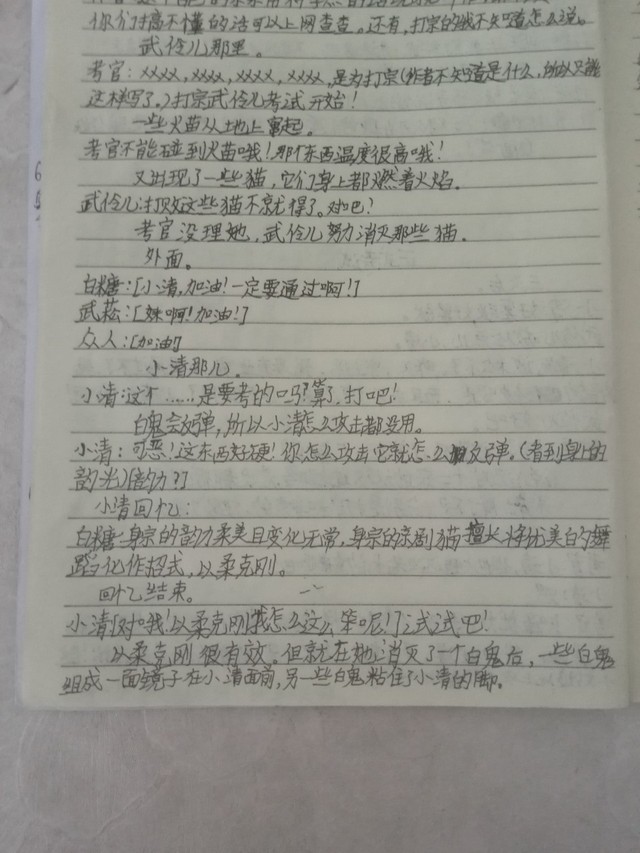 你们搞不懂的话可以上网查查。还有，打宗的我不知道怎么说。
武伶儿那里。
考官：xxxx，xxxx，xxxx，xxxx，是为打宗（作者不知道是什么，所以只能
这样写了。）打宗武伶儿考试开始！
一些火苗从地上窜起。
考官不能碰到火苗哦！那个东西温度很高哦！
又出现了一些猫，它们身上都燃着火焰。
武伶儿：打败这些猫不就得了。对吧？
考官没理她，武伶儿努力消灭那些猫。
外面。
白糖：[小清，加油！一定要通过啊！]
武崧：[妹啊！加油！]
众人：[加油]
小清那儿。
小清：这个……是要考的吗？算了，打吧！
白鬼会反弹，所以小清怎么攻击都没用。
小清：可恶！这东西好硬！你怎么攻击它就怎么反弹。（看到身上的
韵光）[韵力？]
小清回忆：
白糖：身宗的韵力柔美且变化无常，身宗的京剧猫擅长将优美的舞
蹈化作招式，以柔克刚。
回忆结束。
小清[对哦！以柔克刚我怎么这么笨呢！]试试吧！
以柔克刚很有效。但就在她消灭了一个白鬼后，一些白鬼
组成一面镜子在小清面前，另一些白鬼粘住了小清的脚。